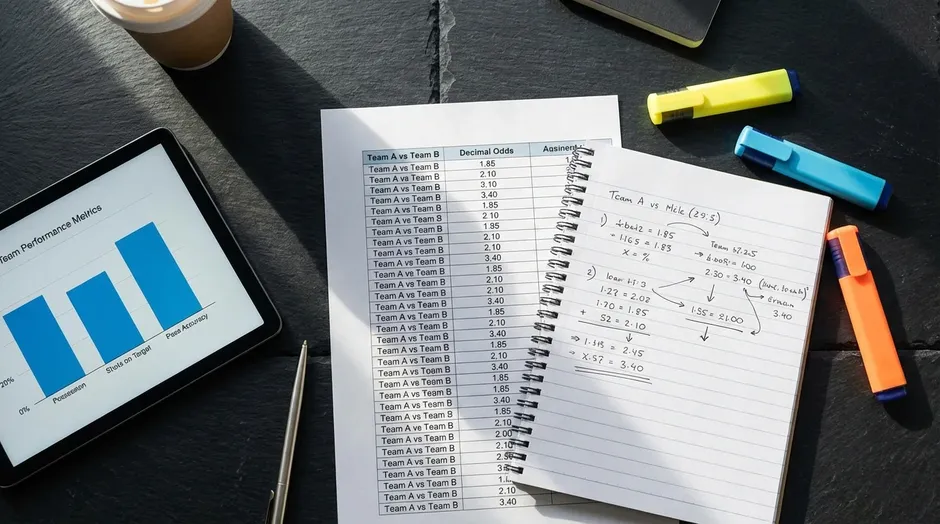 Team Performance Metrics
20%
0%
Possession
Shots on Target
Pass Accuracy
Team A vs Team B Decimal Odds
Team A vs Team B 1.85
Team A vs Team B 2.10
Team A vs Team B 3.10
Team A vs Team B 3.40
Team A vs Team B 1.85
Team A vs Team B 2.10
Team A vs Team B 1.85
Team A vs Team B 2.10
Team A vs Team B 2.10
Team A vs Team B 3.40
Team A vs Team B 1.85
Team A vs Team B 2.10
Team A vs Team B 2.10
Team A vs Team B 3.40
Team A vs Team B 1.85
Team A vs Team B 2.10
Team A vs Team B 3.40
Team A vs Team B 1.85
Team A vs Team B 2.10
Team A vs Team B 3.40
Team A vs Team B 1.85
Team A vs Team B 2.10
Team A vs Team B 3.40
Team A vs Team B 1.85
Team A vs Team B 2.10
Team A vs Team B 2.00
Team A vs Team B 2.10
Team A vs Team B
Team A vs Team B
Team A vs Team B
Team A vs Team B 2.10
Team A vs Team B 3.40
Team A vs (29.5)
1) = 1.85
= 1.83
x = %
2.30 = 3.40
3.40
2)
1.27 = 2.02
1.20 = 1.85
+ 52 = 2.10
1.55 = 21.00
= 2.45
⇒ x.57 = 3.40